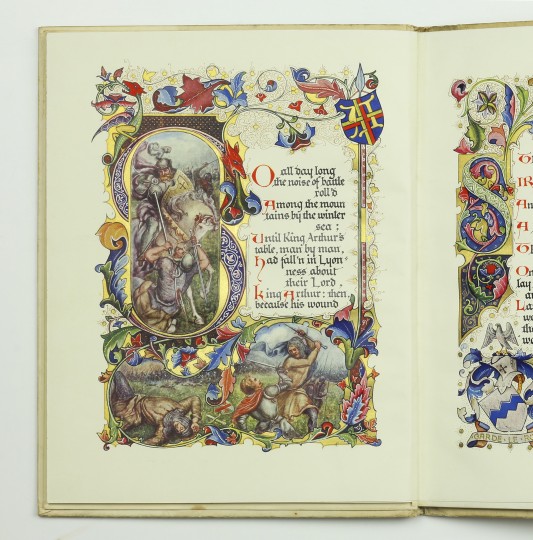 SO all day long
the noise of battle
roll'd
Among the moun
tains by the winter
sea;
Until King Arthur's
table, man by man,
had fall'n in Lyon-
ness about
their Lord,
king Arthur: then,
because his wound
On
lay
GARDE LE